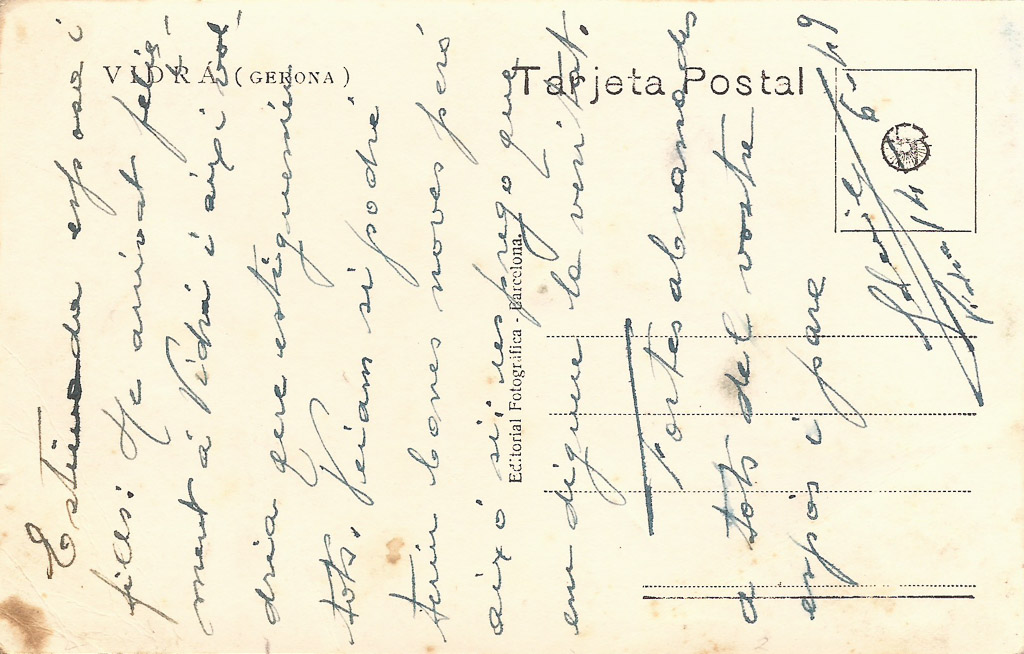 VIDRÁ (GERONA)
Tarjeta Postal
Editorial Fotográfica - Barcelona.
Estimada esposa i
fills: He arrivat felis-
ment á Vidrá i aixi vol-
dria qere estiguemin
tots. Veiam si podré
tenir bones noves peró
aixó si, res prego que
em digueu la veritat.
Fortes abrasades
a tots del vostre
espós i pare
Vidrá 14 6-49